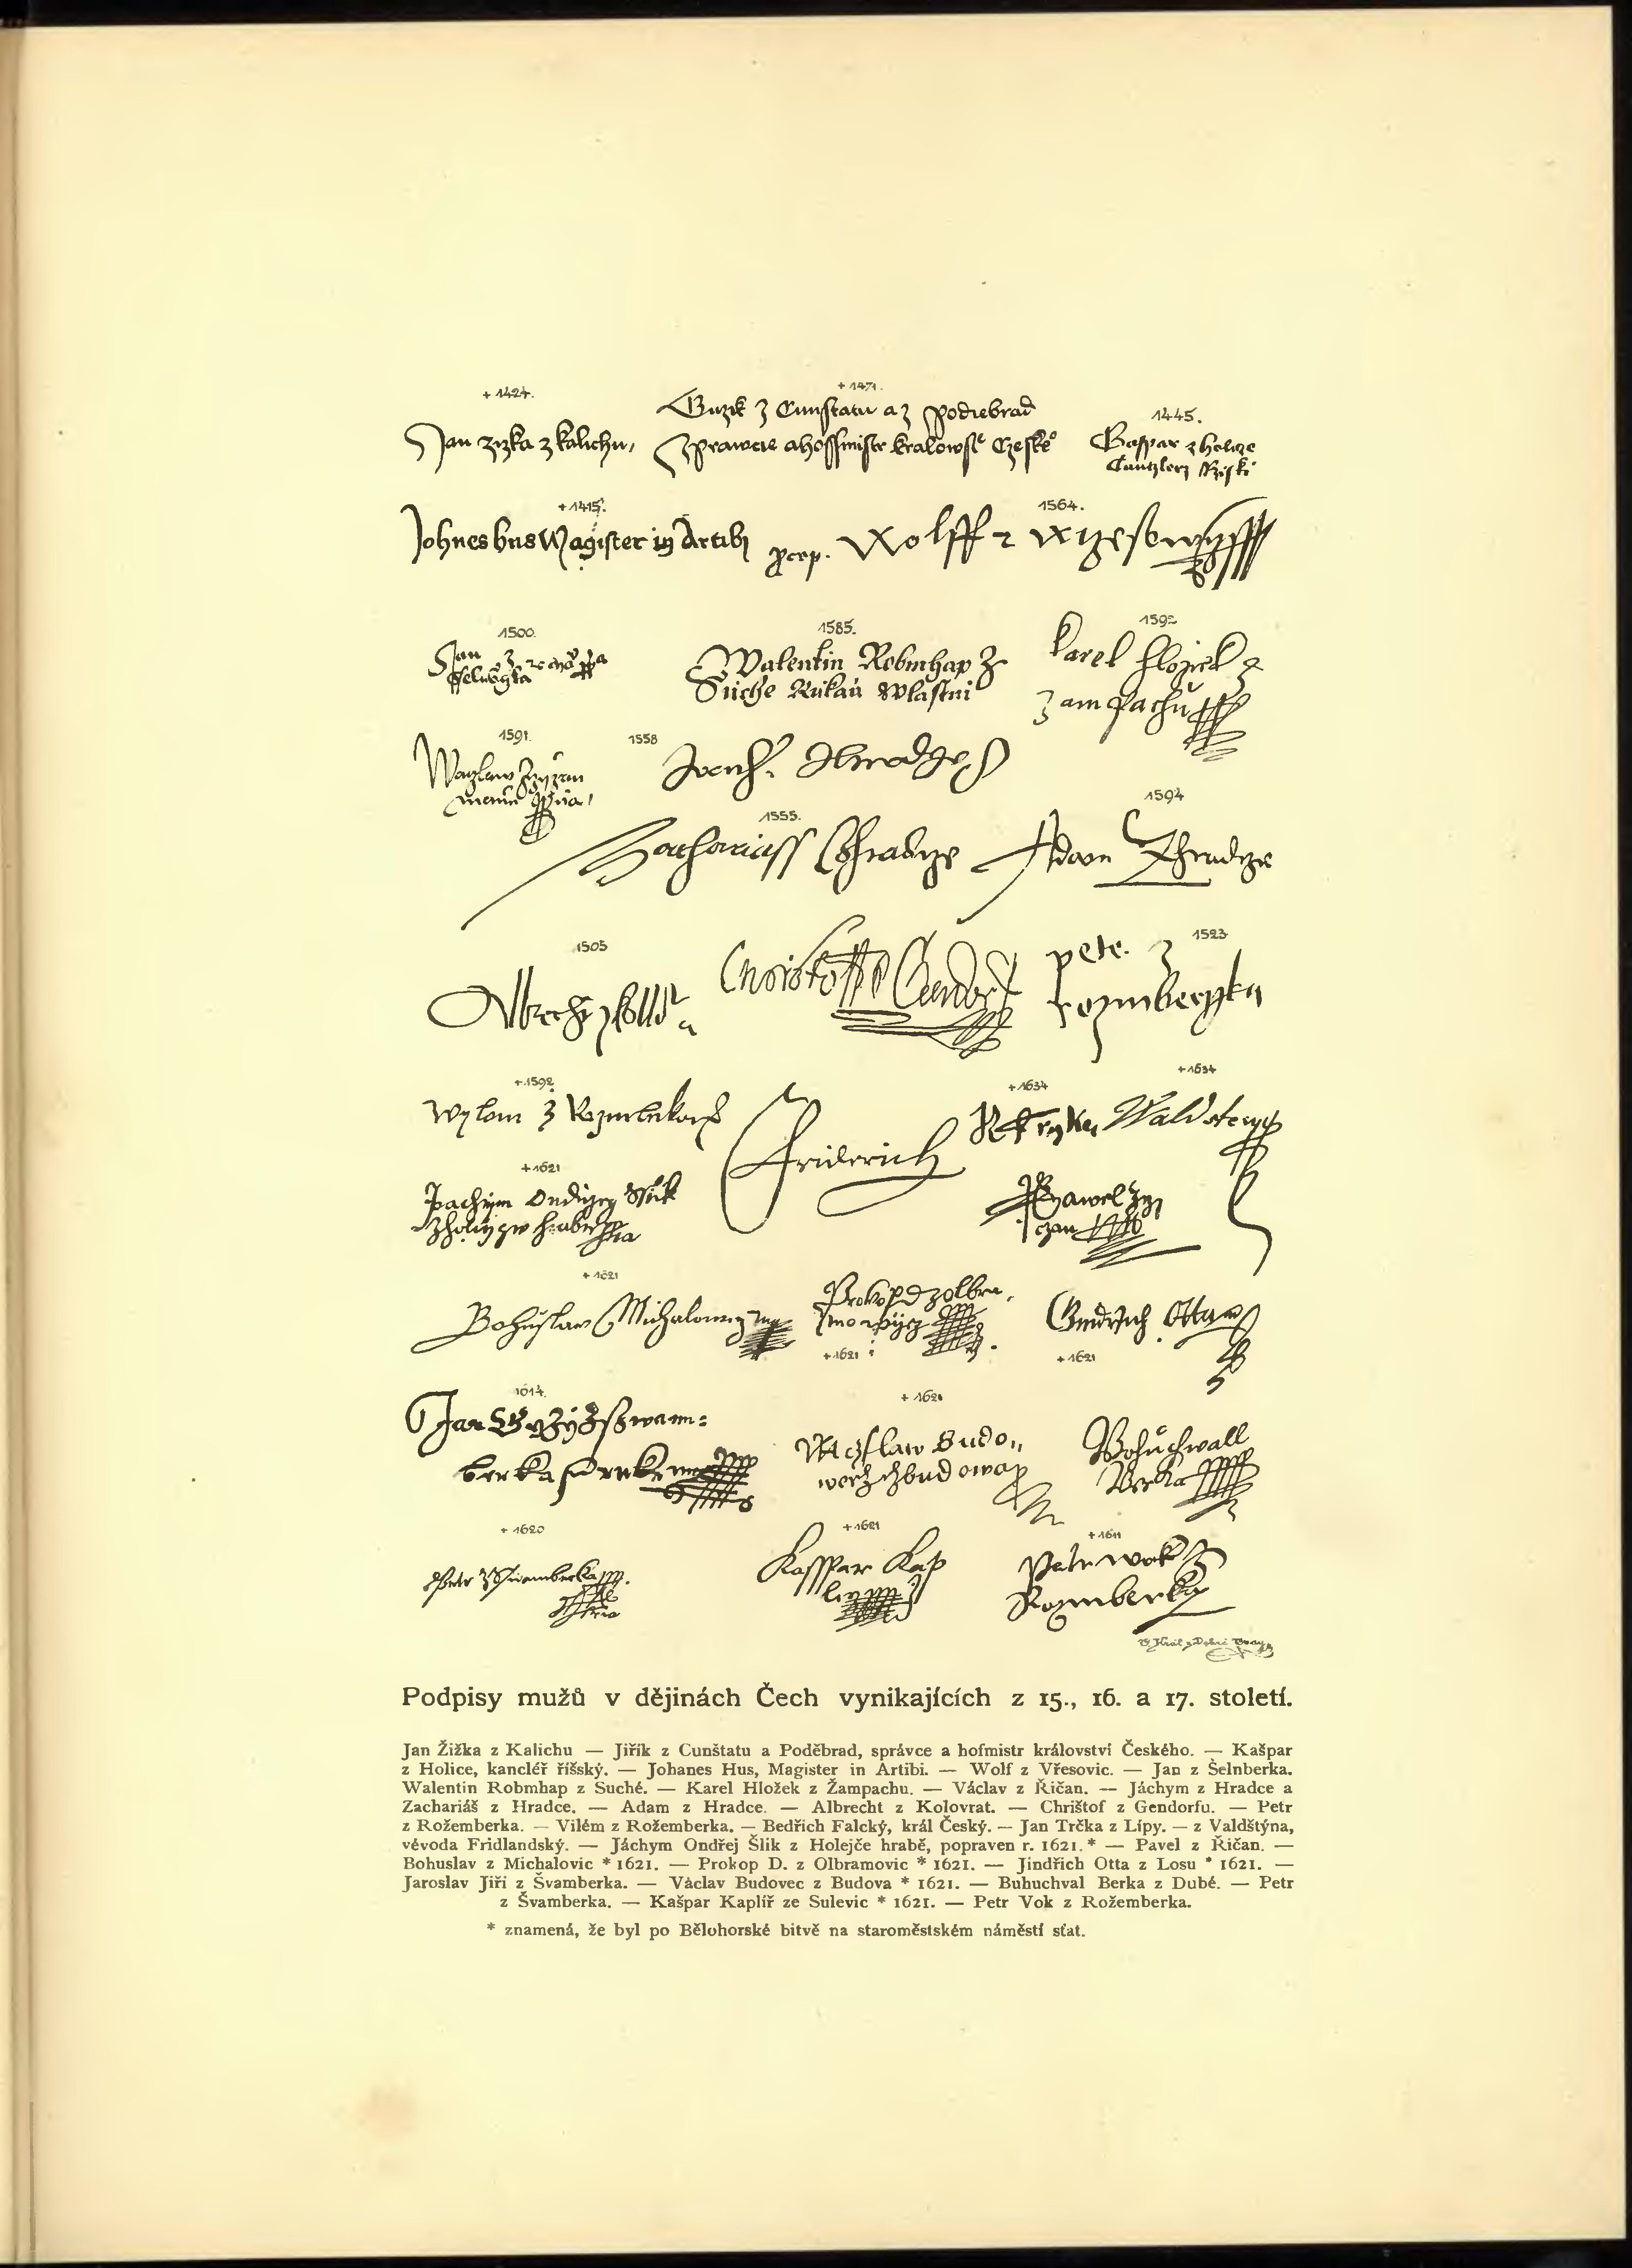 + 1424.
+ 1471.
1445.
Jan zizka z kalichu,
z Cunstatu a z podiebrad
Sprawcie a hoffmistr kralowst Czeske
Gaspar z holicze
Cantzlerz
+ 1415.
1564.
Johnes hus Magister in Artib
Wolff z
1500.
1585.
159
Jan z
Walentin Robmhap z
Suche Rukau Wlastni
Karel Hlozek z
zampachu
1591.
1558
Waczlaw
1555.
1594
Zachariass
Adam z hradcze
1505
1523
Albrecht z
Christoff
Petr z
Rozmbergka
+ 1592.
+ 1634
+ 1634
Wylem z
Friderich
Waldstein
+ 1621
Joachym Ondrzeg Sslik
hrabie
Pawel
+ 1621
Bohuslaw
Prokop D z olbra,
+ 1621
Gindrzich Otta
+ 1621
1614.
+ 1621
Jan
berka
Waczslaw Budo,,
wecz z budowa
Bohuchwall
Berka
+ 1620
+ 1621
+ 1611
Petr z Swamberka
Kasspar Kap
Petr Wok z
Rozmberka
Podpisy mužů v dějinách Čech vynikajících z 15., 16. a 17. století.
Jan Žižka z Kalichu — Jiřík z Cunštatu a Poděbrad, správce a hofmistr království Českého. — Kašpar
z Holice, kancléř říšský. — Johanes Hus, Magister in Artibi. — Wolf z Vřesovic. — Jan z Šelnberka.
Walentin Robmhap z Suché. — Karel Hložek z Žampachu. — Václav z Řičan. — Jáchym z Hradce a
Zachariáš z Hradce. — Adam z Hradce. — Albrecht z Kolovrat. — Chrištof z Gendorfu. — Petr
z Rožemberka. — Vilém z Rožemberka. — Bedřich Falcký, král Český. — Jan Trčka z Lípy. — z Valdštýna,
vévoda Fridlandský. — Jáchym Ondřej Šlik z Holejče hrabě, popraven r. 1621.* — Pavel z Řičan. —
Bohuslav z Michalovic * 1621. — Prokop D. z Olbramovic * 1621. — Jindřich Otta z Losu * 1621. —
Jaroslav Jiří z Švamberka. — Václav Budovec z Budova * 1621. — Buhuchval Berka z Dubé. — Petr
z Švamberka. — Kašpar Kaplíř ze Sulevic * 1621. — Petr Vok z Rožemberka.
* znamená, že byl po Bělohorské bitvě na staroměstském náměstí sťat.